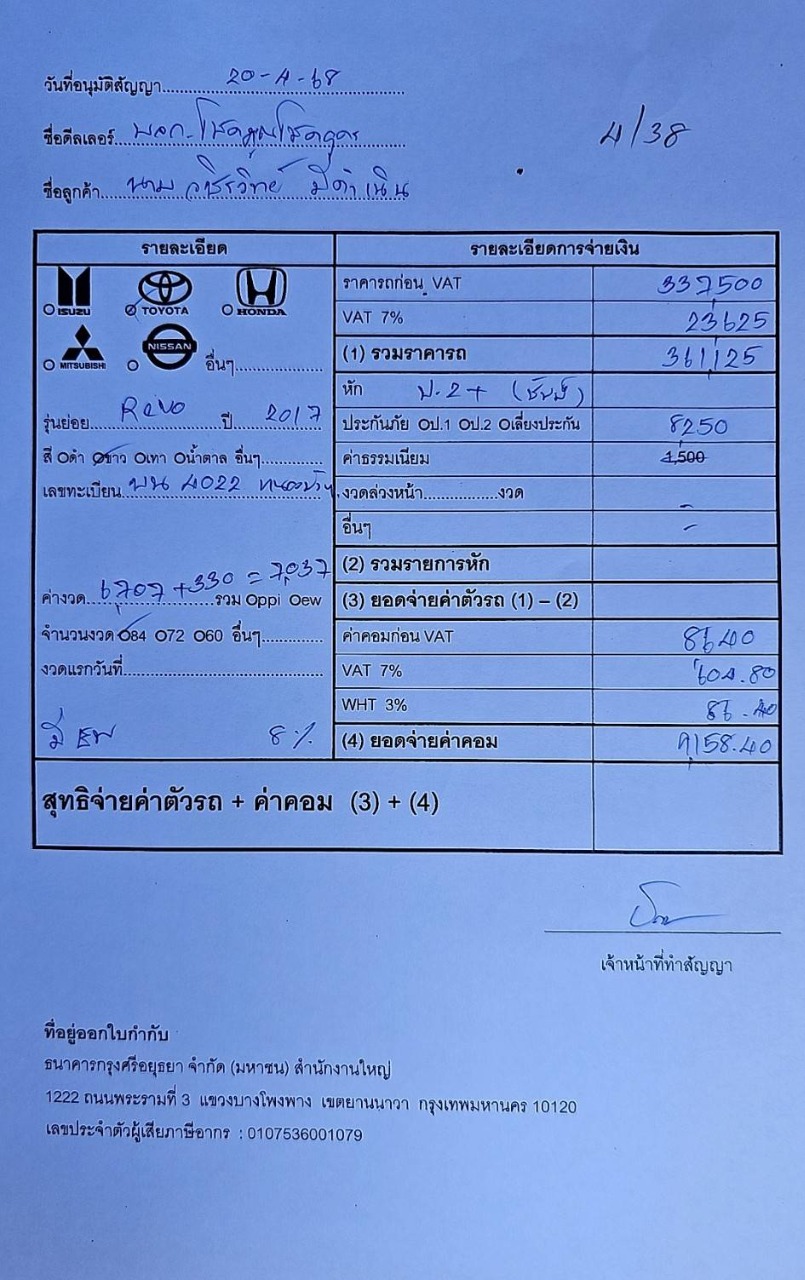 วันที่อนุมัติสัญญา 20-4-68
ชื่อดีลเลอร์
4/38
ชื่อลูกค้า นาย วชิรวิทย์ มีดำเนิน
รายละเอียด
รายละเอียดการจ่ายเงิน
ISUZU
TOYOTA
HONDA
MITSUBISHI
NISSAN
อื่นๆ
รุ่นย่อย Revo ปี 2017
สี ดำ ขาว เทา น้ำตาล อื่นๆ
เลขทะเบียน 4022
ค่างวด 6,707 + 330 = 7,037 รวม Oppi Oew
จำนวนงวด 84 72 60 อื่นๆ
งวดแรกวันที่
มี 8%
ราคารถก่อน VAT 337,500
VAT 7% 23625
(1) รวมราคารถ 361,125
หัก ป.2+
ประกันภัย ป.1 ป.2 เลี่ยงประกัน 8,250
ค่าธรรมเนียม 1,500
งวดล่วงหน้า งวด -
อื่นๆ -
(2) รวมรายการหัก
(3) ยอดจ่ายค่าตัวรถ (1) – (2)
ค่าคอมก่อน VAT 8640
VAT 7% 604.80
WHT 3% 86.40
(4) ยอดจ่ายค่าคอม 9,158.40
สุทธิจ่ายค่าตัวรถ + ค่าคอม (3) + (4)
เจ้าหน้าที่ทำสัญญา
ที่อยู่ออกใบกำกับ
ธนาคารกรุงศรีอยุธยา จำกัด (มหาชน) สำนักงานใหญ่
1222 ถนนพระรามที่ 3 แขวงบางโพงพาง เขตยานนาวา กรุงเทพมหานคร 10120
เลขประจำตัวผู้เสียภาษีอากร : 0107536001079